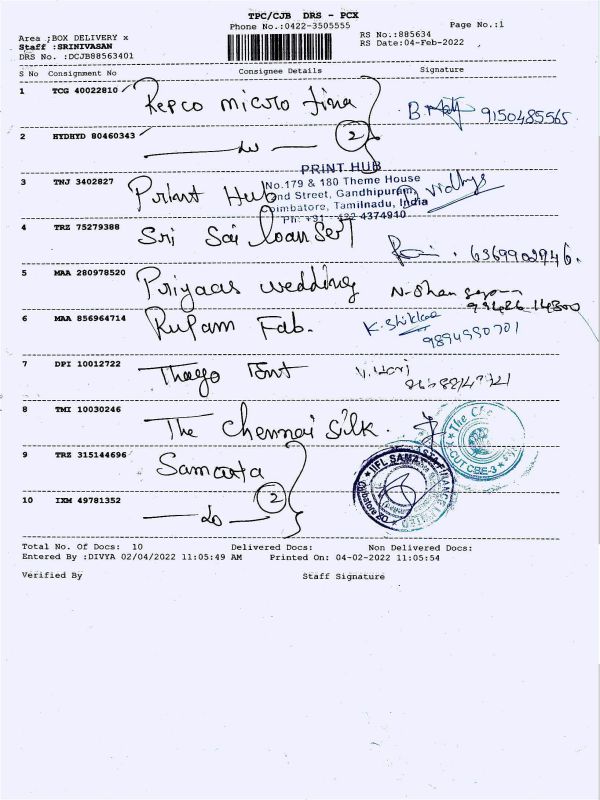 TPC/CJB DRS - PCX
Phone No.:0422-3505555
Page No.:1
Area :BOX DELIVERY x
RS No.:885634
Staff :SRINIVASAN
RS Date:04-Feb-2022
DRS No. :DCJB88563401
S No Consignment No Consignee Details Signature
1 TCG 40022810 Repco micro fina B. 9150485565
2 HYDHYD 80460343 — do — 2
PRINT HUB
No.179 & 180 Theme House
2nd Street, Gandhipuram,
Coimbatore, Tamilnadu, India
Ph: +91 - 422 4374910
3 TNJ 3402827 Print Hub Vidhya
4 TRZ 75279388 Sri Sai loan Sert 6369902946.
5 MAA 280978520 Priyaas wedding
6 MAA 856964714 Rupam Fab. 9894550701
7 DPI 10012722 V. Hari
8 TMI 10030246 The Chennai Silk.
The Che
CUT CBE-3
9 TRZ 315144696 Samasta 2
IIFL SAMASTA FINANCE LIMITED
Coimbatore BO
10 IXM 49781352 — do —
Total No. Of Docs: 10 Delivered Docs: Non Delivered Docs:
Entered By :DIVYA 02/04/2022 11:05:49 AM Printed On: 04-02-2022 11:05:54
Verified By Staff Signature